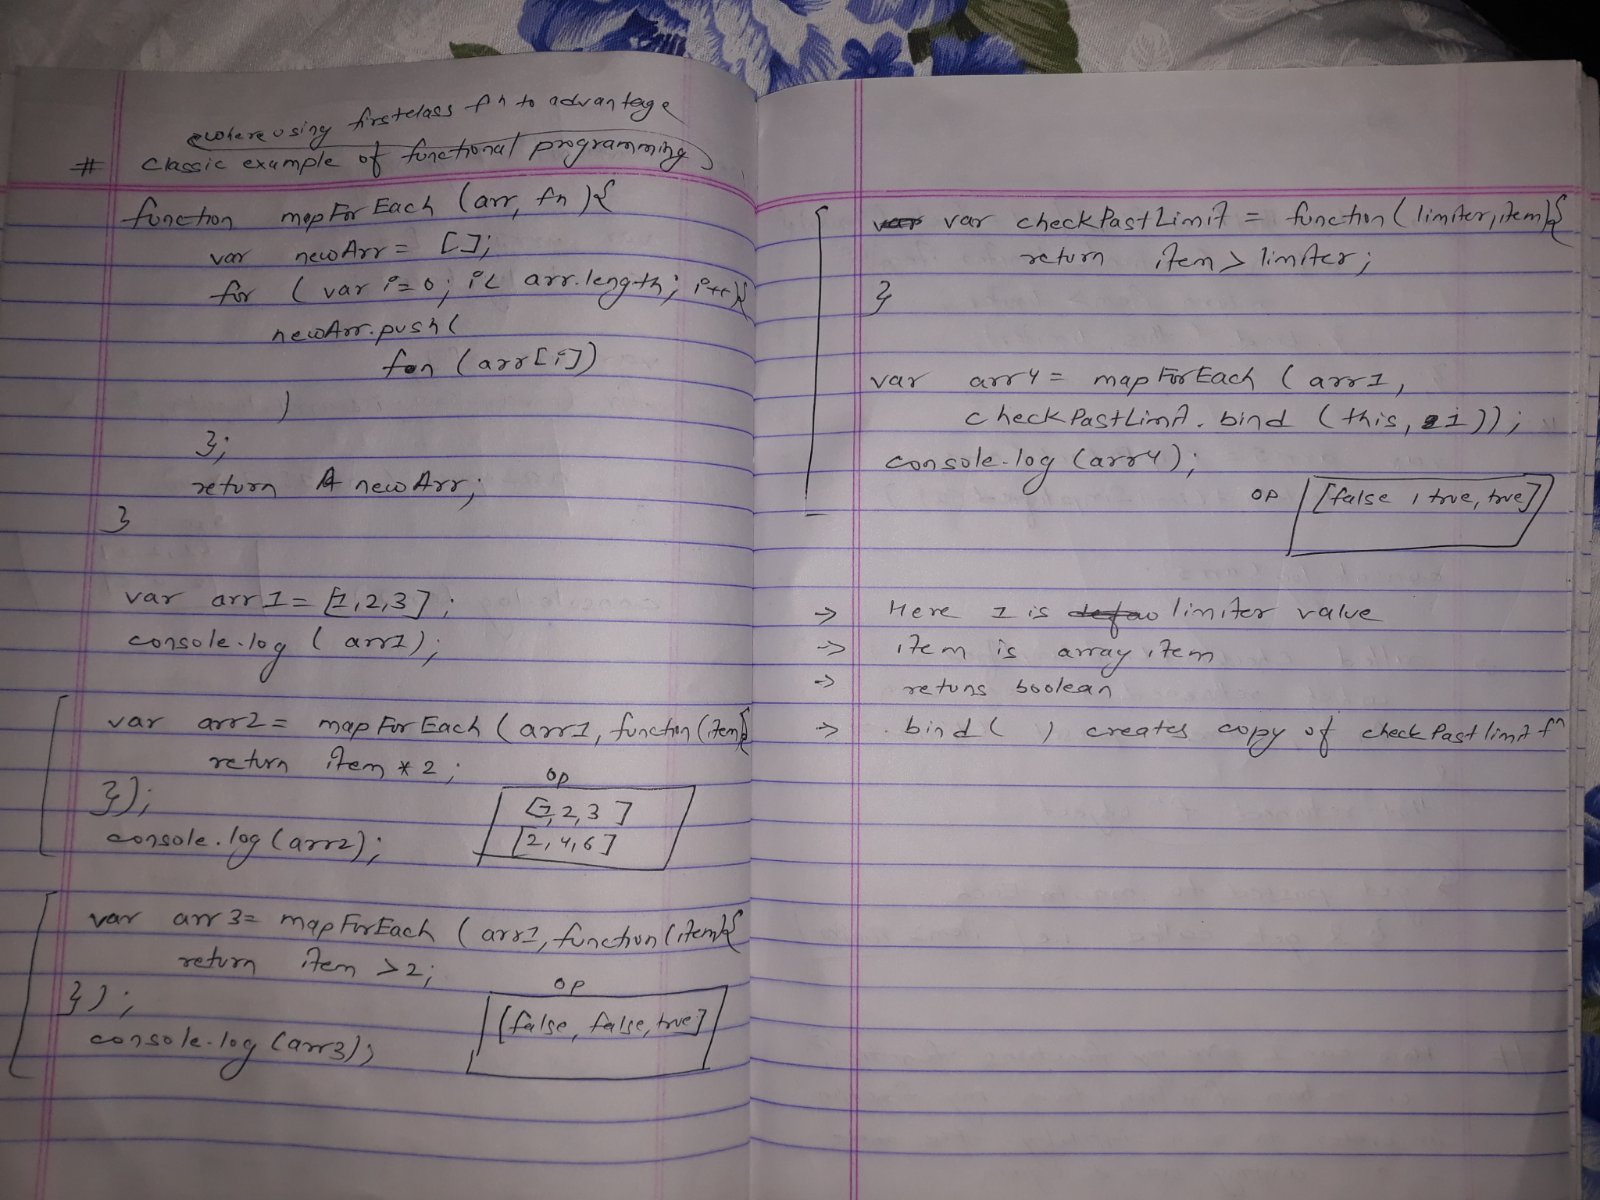 where using firstclass fn to advantage
# classic example of functional programming
function mapForEach (arr, fn){
var newArr = [];
for (var i=0; i< arr.length; i++){
newArr.push(
fn (arr[i])
)
};
return newArr;
}
var arr1 = [1,2,3];
console.log (arr1);
var arr2 = mapForEach (arr1, function(item){
return item * 2;
});
console.log(arr2);
op
[1,2,3]
[2,4,6]
var arr3= mapForEach (arr1, function(item){
return item >2;
});
console.log(arr3);
op
[false, false, true]
var checkPastLimit = function(limiter,item){
return item > limiter;
}
var arr4 = mapForEach (arr1,
checkPastLimit.bind (this, 1));
console.log (arr4);
op [false, true, true]
→ Here 1 is limiter value
→ item is array item
→ retuns boolean
→ .bind( ) creates copy of checkPastlimit fn